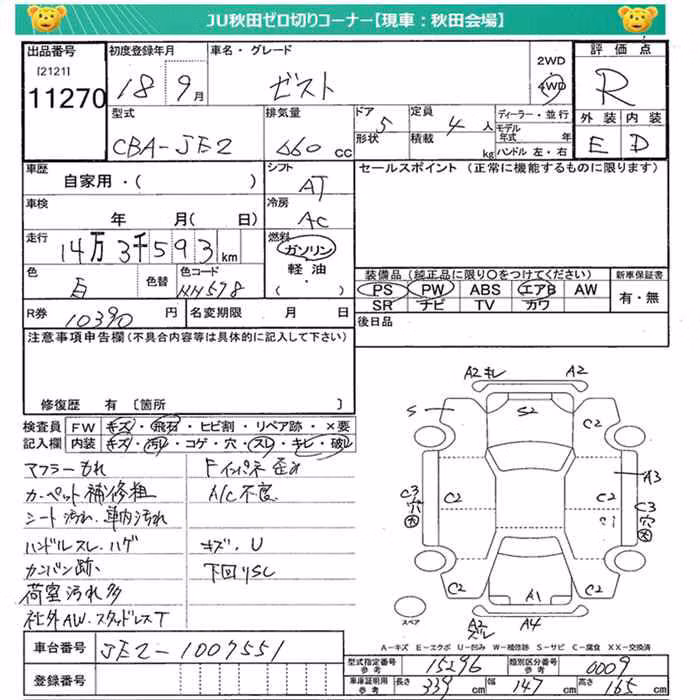 JU秋田ゼロ切りコーナー【現車：秋田会場】
出品番号 初度登録年月 車名・グレード 2WD 評価点
[2121] 11270 18 9月 ゼスト 4WD R
型式 排気量 ドア 定員 ディーラー・並行 外装 内装
CBA-JE2 660 cc 5 4 人 モデル年式 年 E D
形状 積載 kg ハンドル 左・右
車歴 シフト セールスポイント (正常に機能するものに限ります)
自家用・( ) AT
車検 冷房
年 月( 日) AC
走行 燃料
14万3千593km ガソリン
軽油・( )
色 色替 色コード 装備品(純正品に限り〇をつけてください) 新車保証書
白 NH578 PS PW ABS エアB AW 有・無
SR ナビ TV カワ
R券 10390 円 名変期限 月 日 後日品
注意事項申告欄(不具合内容等は具体的に記入して下さい)
修復歴 有 [箇所 ]
検査員 FW キズ・飛石・ヒビ割・リペア跡・×要
記入欄 内装 キズ・汚れ・コゲ・穴・スレ・キレ・破れ
マフラーもれ Fインパネ歪み
カーペット補修粗 A/C不良
シート汚れ、車内汚れ
ハンドルスレ、ハゲ キズ、U
カンバン跡 下回りSC
荷室汚れ多
社外AW、スタッドレスT
A2キレ A2
S S2 C2
A3
C3 穴 大 C2 C2 C3 穴 大
C1
C2 A1 C2
スペア A2 A4
A-キズ E-エクボ U-凹み W-補修跡 S-サビ C-腐食 XX-交換済
車台番号 JE2-1007551
登録番号
型式指定番号 参考 15296 類別区分番号 参考 0009
車庫証明用 参考 長さ 339 cm 幅 147 cm 高さ 165 cm